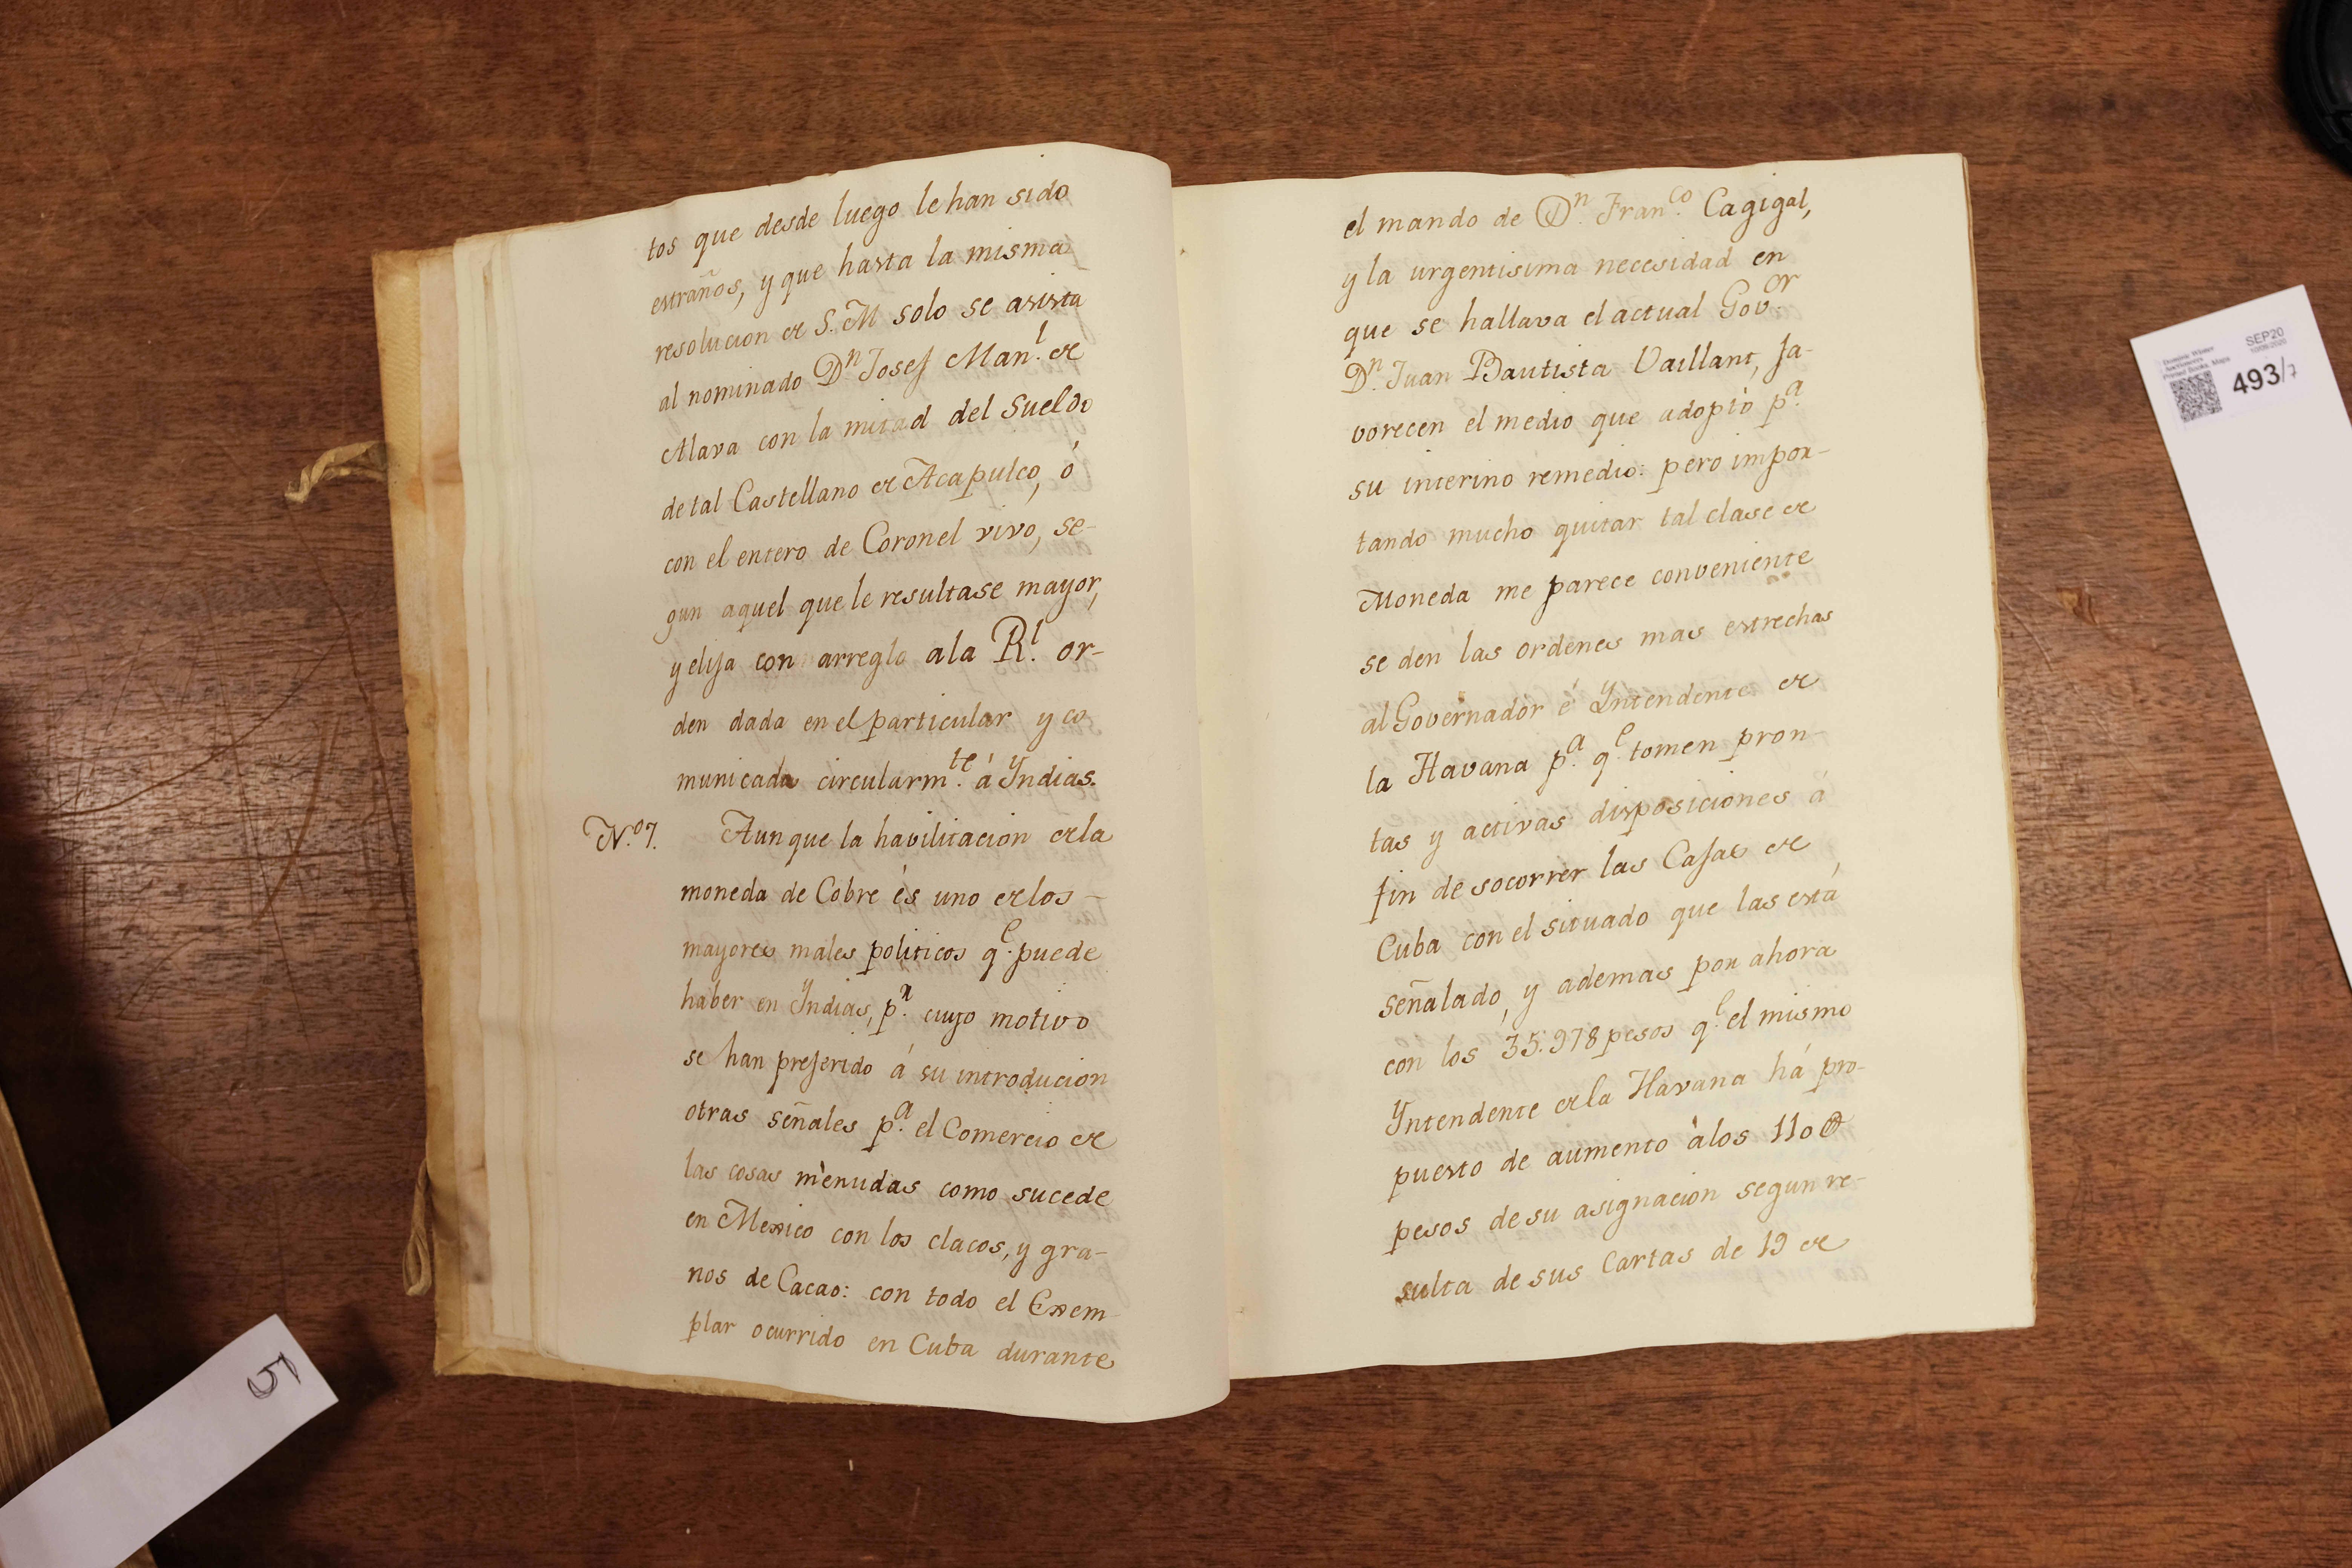 tos que desde luego le han sido
estraños, y que hasta la misma
resolucion de S. M solo se asista
al nominado Dn Josef Man.l de
Alava con la mitad del Sueldo
de tal Castellano de Acapulco, ó
con el entero de Coronel vivo, se-
gun aquel que le resultase mayor,
y elija con arreglo a la R.l or-
den dada en el particular y co
municada circularm.te á Yndias.
N.o 7. Aunque la havilitacion de la
moneda de Cobre és uno de los
mayores males politicos q.e puede
haber en Yndias, p.a cuyo motivo
se han preferido á su introducion
otras señales p.a el Comercio de
las cosas menudas como sucede
en Mexico con los clacos, y gra-
nos de Cacao: con todo el Exem-
plar ocurrido en Cuba durante
el mando de Dn. Fran.co Cagigal,
y la urgentisima necesidad en
que se hallava el actual Gov.or
Dn. Juan Bautista Vaillant, fa-
vorecen el medio que adoptó p.a
su interino remedio: pero impor-
tando mucho quitar tal clase de
Moneda me parece conveniente
se den las ordenes mas estrechas
al Governador é Yntendente de
la Havana p.a q.e tomen pron-
tas y activas disposiciones á
fin de socorrer las Cajas de
Cuba con el situado que las está
señalado, y ademas por ahora
con los 35.978 pesos q.e el mismo
Yntendente de la Havana há pro-
puesto de aumento á los 110 @
pesos de su asignacion segun re-
sulta de sus Cartas de 19 de
SEP20
493/7
5